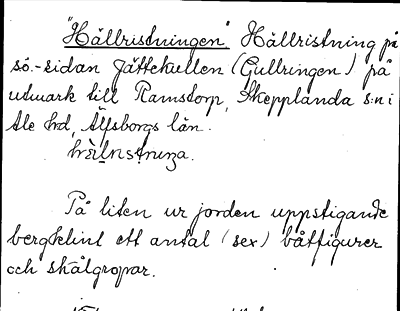 "Hällristningen" Hällristning på
sö.-sidan Jättekullen (Gullringen) på
utmark till Ramstorp, Skepplanda s:n i
Ale hd, Älfsborgs län.
På liten ur jorden uppstigande
bergklint ett antal (sex) båtfigurer
och skålgropar.